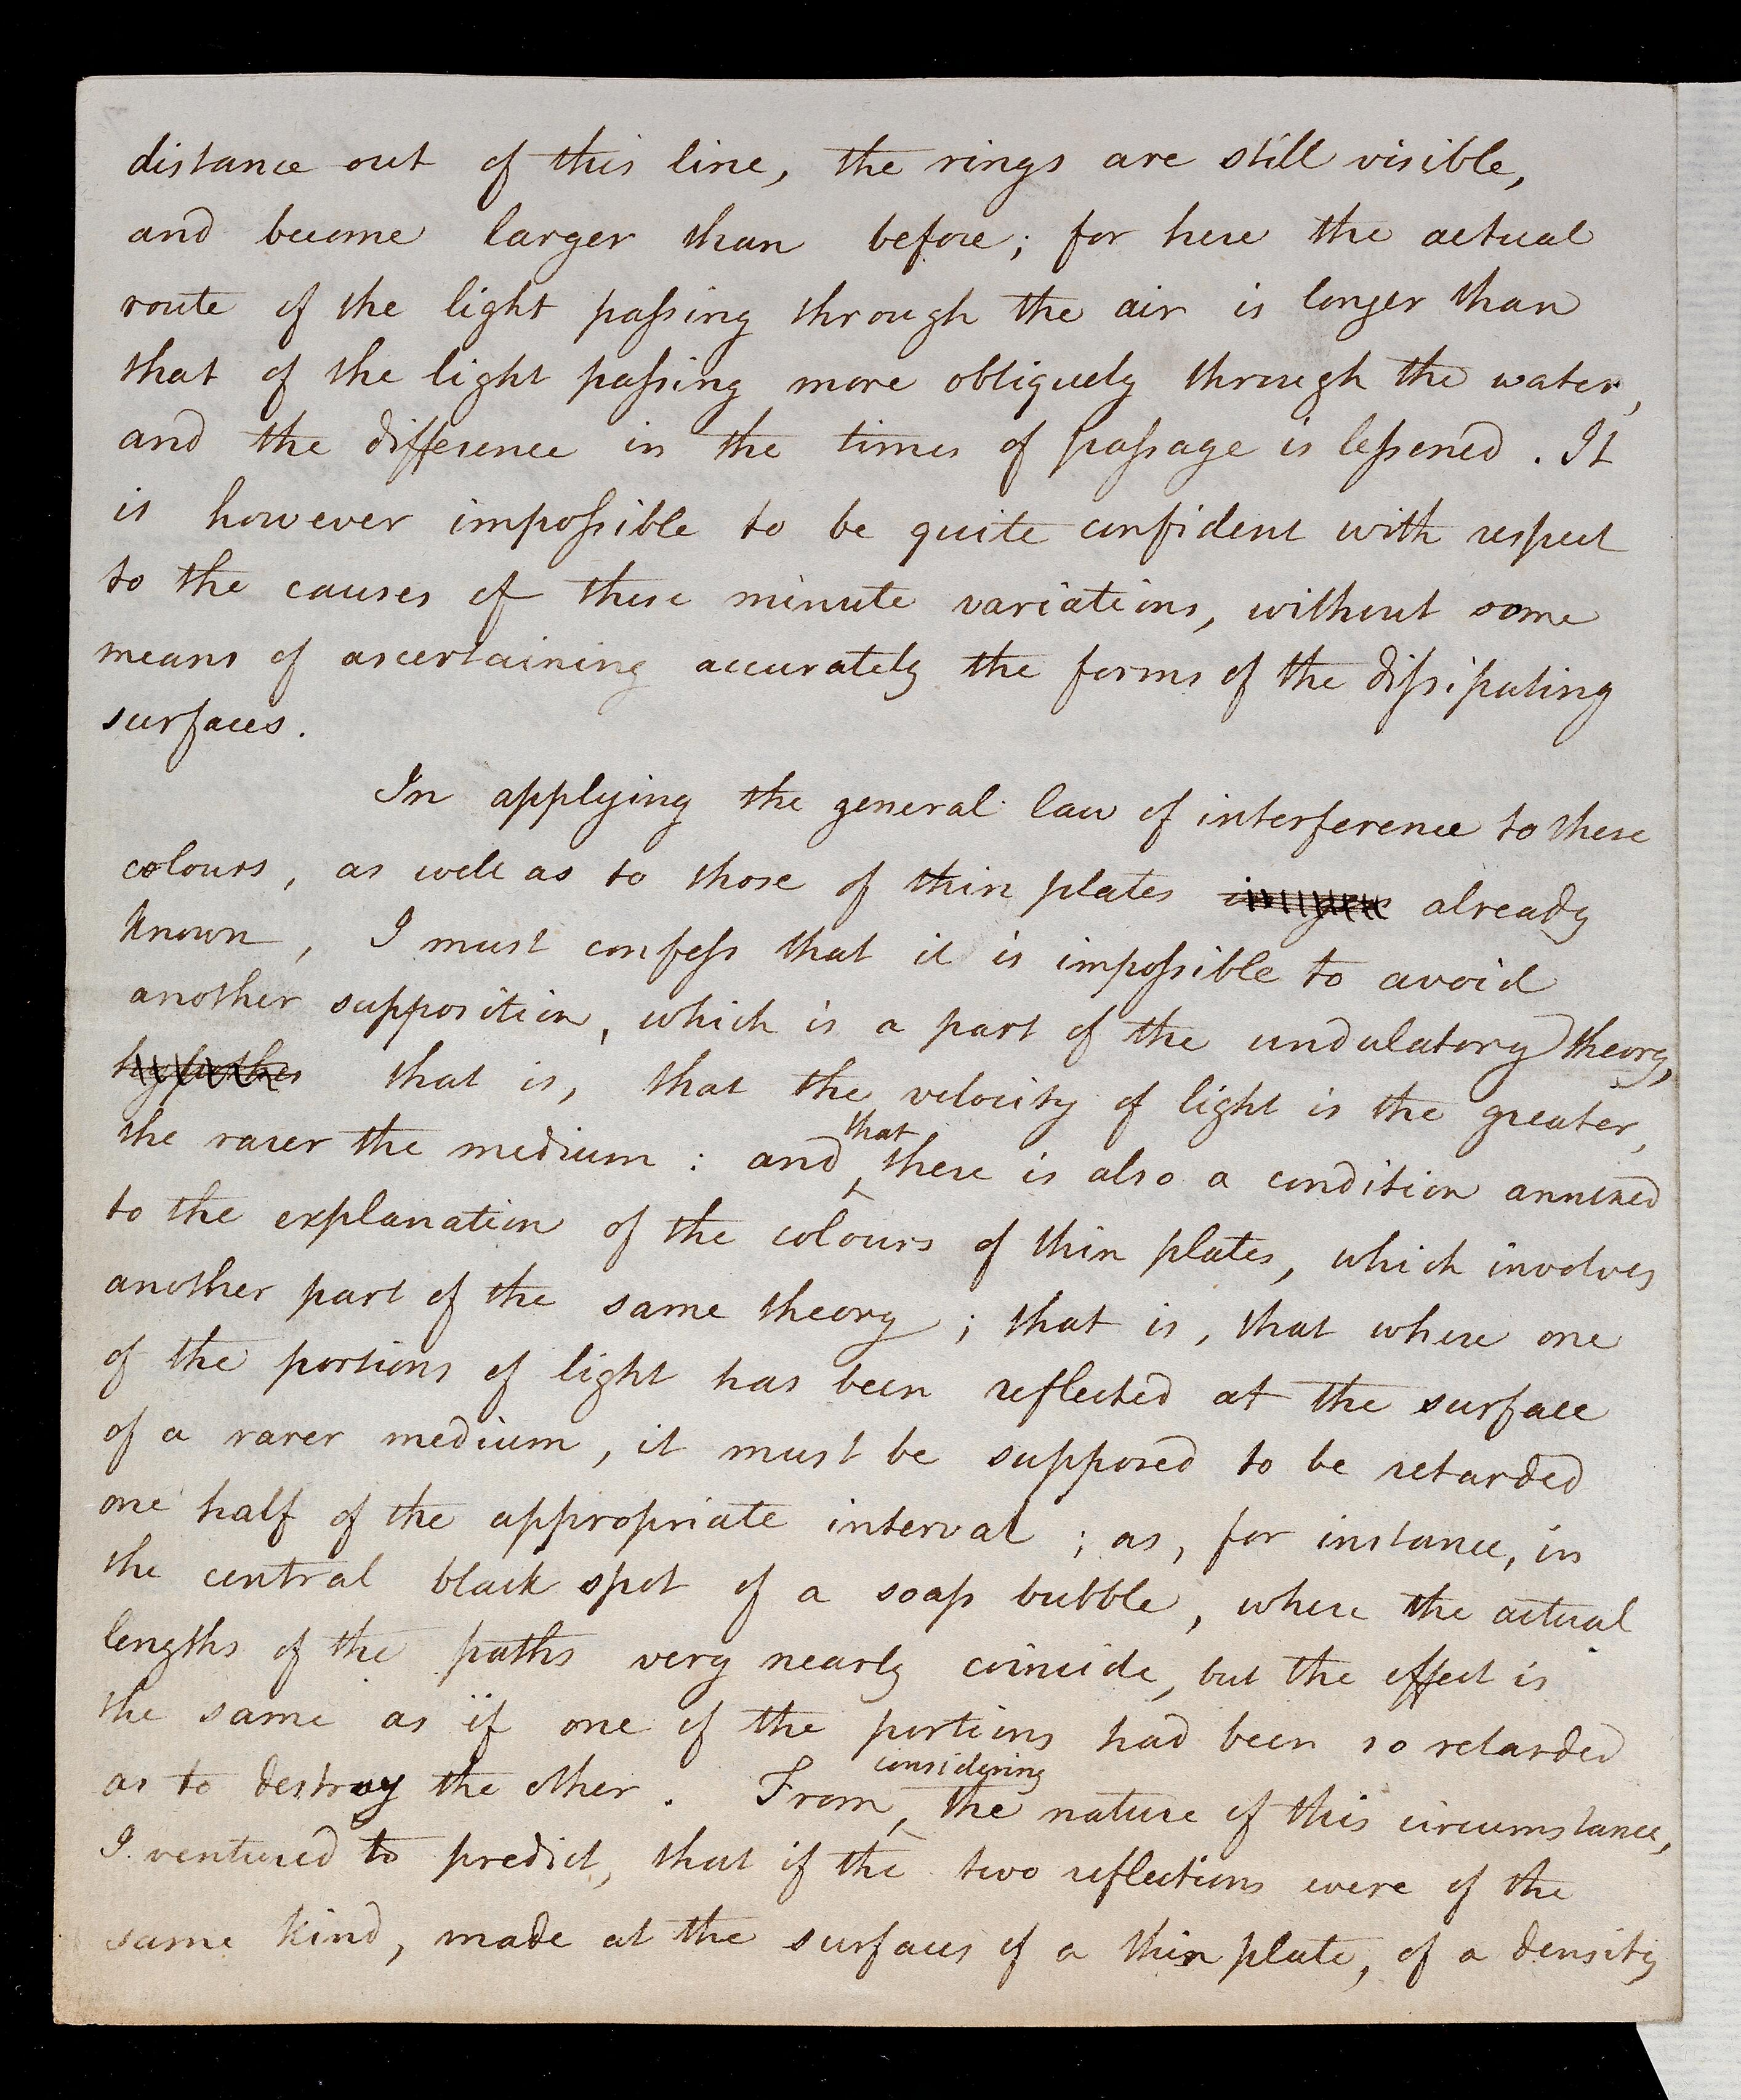 distance out of this line, the rings are still visible,
and become larger than before; for here the actual
route of the light paſsing through the air is longer than
that of the light paſsing more obliquely through the water,
and the difference in the times of paſsage is leſsened. It
is however impoſsible to be quite confident with respect
to the causes of these minute variations, without some
means of ascertaining accurately the forms of the diſsipating
surfaces.
In applying the general law of interference to these
colours, as well as to those of thin plates already
known, I must confeſs that it is impoſsible to avoid
another supposition, which is a part of the undulatory theory,
that is, that the velocity of light is the greater,
the rarer the medium : and that there is also a condition annexed
to the explanation of the colours of thin plates, which involves
another part of the same theory ; that is, that where one
of the portions of light has been reflected at the surface
of a rarer medium, it must be supposed to be retarded
one half of the appropriate interval ; as, for instance, in
the central black spot of a soap bubble, where the actual
lengths of the paths very nearly coincide, but the effect is
the same as if one of the portions had been so retarded
as to destroy the other. From considering the nature of this circumstance,
I ventured to predict, that if the two reflections were of the
same kind, made at the surfaces of a thin plate, of a density